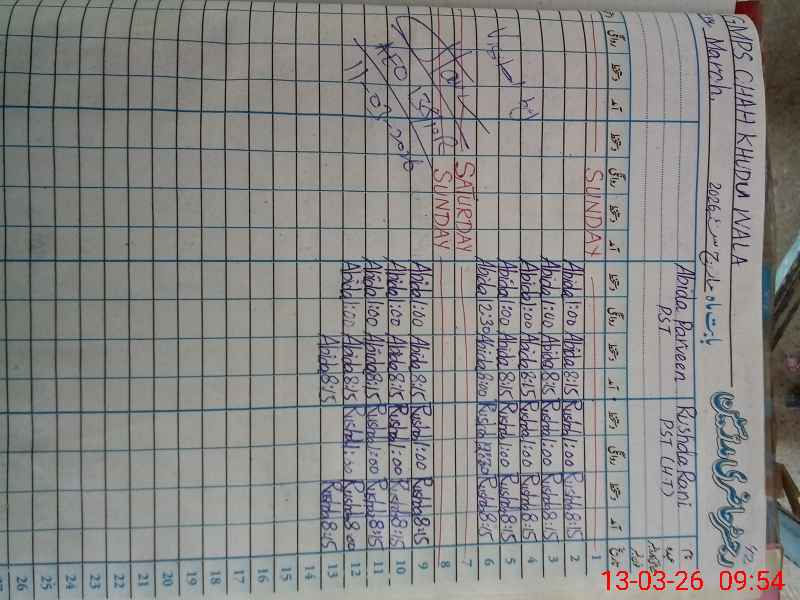 رجسٹر حاضری مدرسین
GMPS CHAH KHUDU WALA
March. 2026
Abida Parveen Rushda Rani
PST PST (HT)
SUNDAY 1
Abida 1:00 Abida 8:15 Rushda 1:00 Rushda 8:15 2
Abida 1:00 Abida 8:15 Rushda 1:00 Rushda 8:15 3
Abida 1:00 Abida 8:15 Rushda 1:00 Rushda 8:15 4
Abida 1:00 Abida 8:15 Rushda 1:00 Rushda 8:15 5
Abida 12:30 Abida 8:00 Rushda 12:30 Rushda 8:15 6
SATURDAY 7
SUNDAY 8
Abida 1:00 Abida 8:15 Rushda 1:00 Rushda 8:15 9
Abida 1:00 Abida 8:15 Rushda 1:00 Rushda 8:15 10
Abida 1:00 Abida 8:15 Rushda 1:00 Rushda 8:15 11
Abida 1:00 Abida 8:15 Rushda 1:30 Rushda 8:00 12
Abida 8:15 Rushda 8:15 13
14
15
16
17
18
19
20
21
22
23
24
25
26
Visited by
11-03-2026
13-03-26 09:54